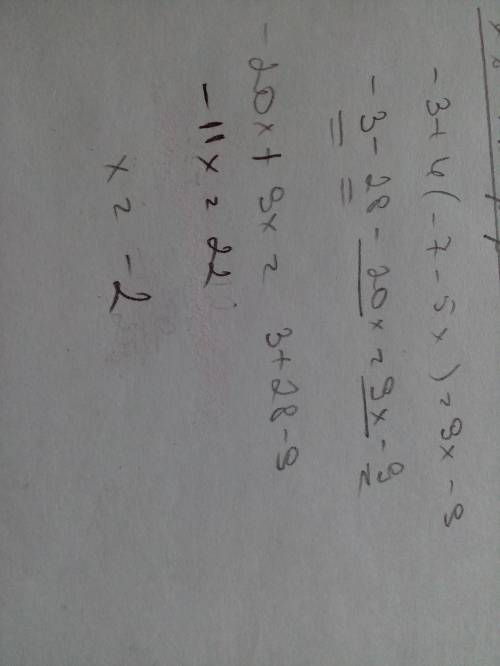 -3+4(-7-5x)=9x-9
-3-28-20x=9x-9
-20x+9x= 3+28-9
-11x=22
x=-2